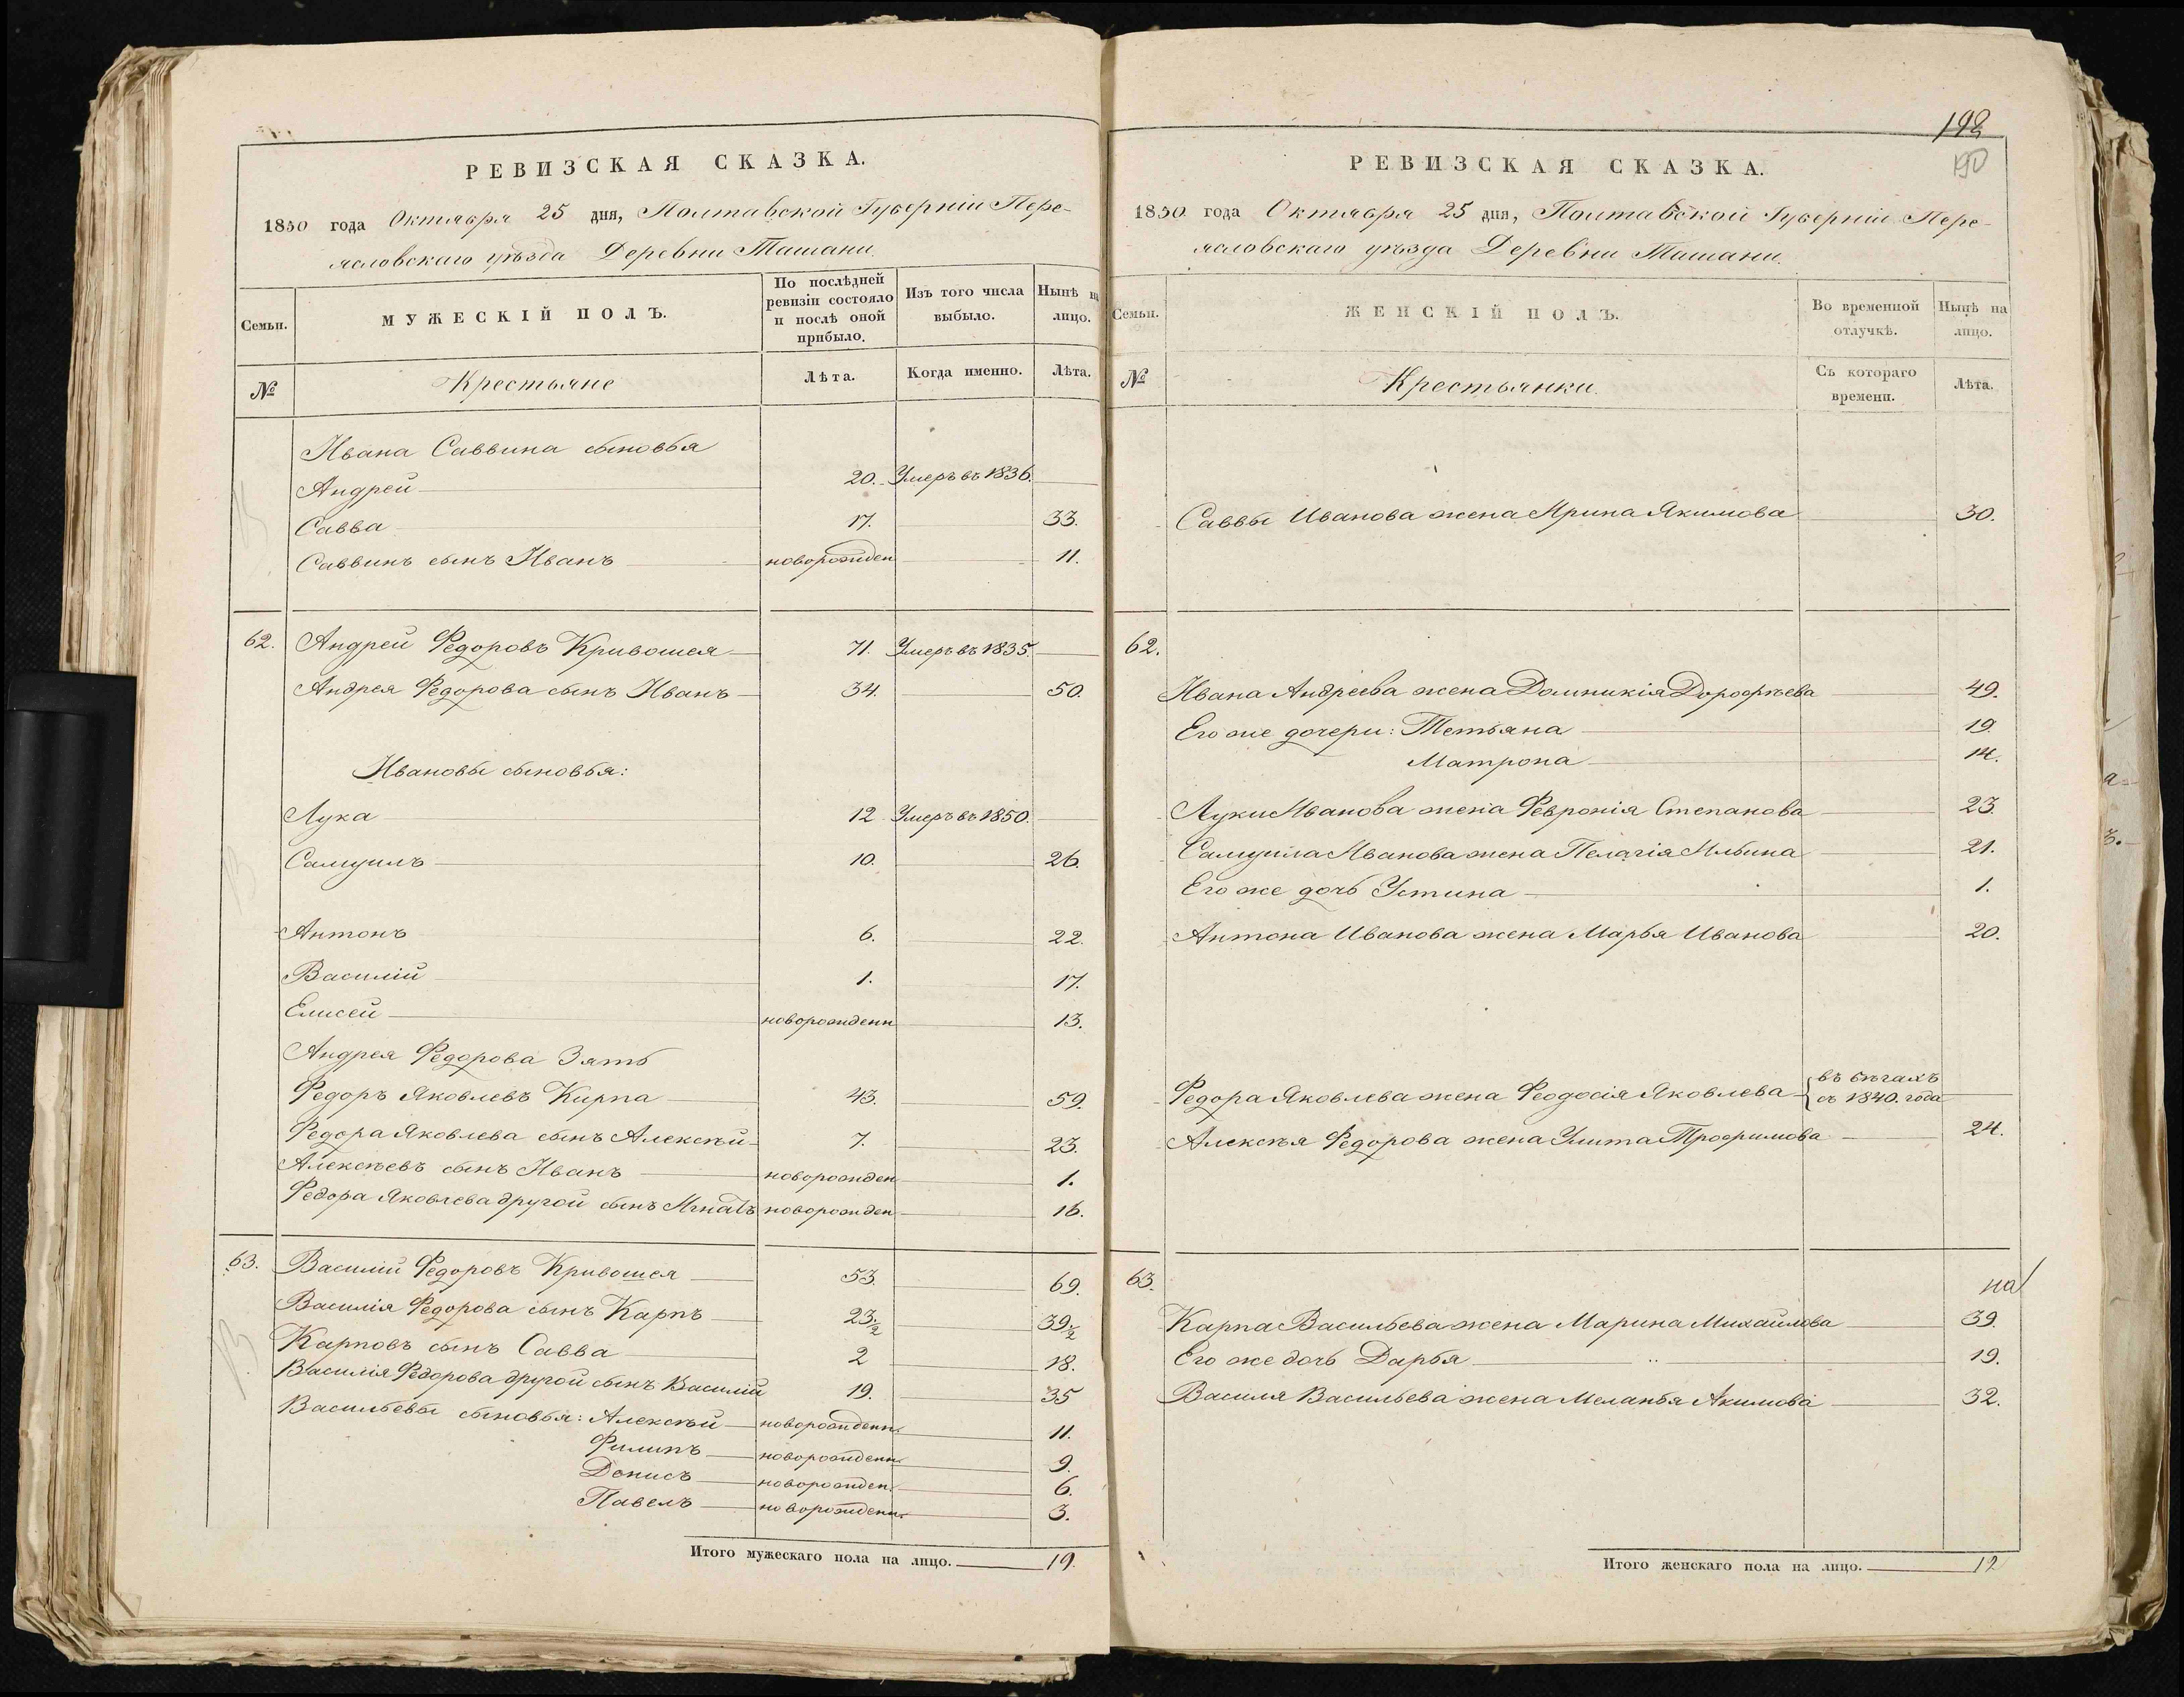 РЕВИЗСКАЯ СКАЗКА.
1850 года Октября 25 дня, Полтавской Губерніи Пере-
ясловскаго уѣзда Деревни Ташани.
Семьи.
МУЖЕСКІЙ ПОЛЪ.
По послѣдней
ревизіи состояло
и послѣ оной
прибыло.
Изъ того числа
выбыло.
Нынѣ на
лицо.
№
Крестьяне
Лѣта.
Когда именно.
Лѣта.
Ивана Саввина сыновья
Андрей 20. Умеръ въ 1836.
Савва 17. 33.
Саввинъ сынъ Иванъ новорожден 11.
62. Андрей Федоровъ Кривошея 71. Умеръ въ 1835.
Андрея Федорова сынъ Иванъ 34. 50.
Ивановы сыновья:
Лука 12 Умеръ въ 1850.
Самуилъ 10. 26.
Антонъ 6. 22.
Василій 1. 17.
Елисей новорожденн 13.
Андрея Федорова Зять
Федоръ Яковлевъ Кирпа 43. 59.
Федора Яковлева сынъ Алексѣй 7. 23.
Алексѣевъ сынъ Иванъ новорожден 1.
Федора Яковлева другой сынъ Игнатъ новорожден 16.
63. Василій Федоровъ Кривошея 53. 69.
Василія Федорова сынъ Карпъ 23.½ 39.½
Карповъ сынъ Савва 2 18.
Василія Федорова другой сынъ Василій 19. 35
Васильевы сыновья: Алексѣй новорожденн. 11.
Филипъ новорожденн. 9.
Денисъ новорожден. 6.
Павелъ новорожденн. 3.
Итого мужескаго пола на лицо. 19.
192
190
РЕВИЗСКАЯ СКАЗКА.
1850 года Октября 25 дня, Полтавской Губерніи Пере-
ясловскаго уѣзда Деревни Ташани.
Семьи.
ЖЕНСКІЙ ПОЛЪ.
Во временной
отлучкѣ.
Нынѣ на
лицо.
№
Крестьянки.
Съ котораго
времени.
Лѣта.
Саввы Иванова жена Ирина Якимова 30.
62.
Ивана Андреева жена Домникія Дорофѣева 49.
Его же дочери: Тетьяна 19.
Матрона 14.
Луки Иванова жена Февронія Степанова 23.
Самуила Иванова жена Пелагія Ильина 21.
Его же дочь Устина 1.
Антона Иванова жена Марья Иванова 20.
Федора Яковлева жена Феодосія Яковлева въ бѣгахъ
съ 1840. года
Алексѣя Федорова жена Улита Трофимова 24.
63.
на
Карпа Васильева жена Марина Михайлова 39.
Его же дочь Дарья 19.
Василя Васильева жена Меланья Акимова 32.
Итого женскаго пола на лицо. 12